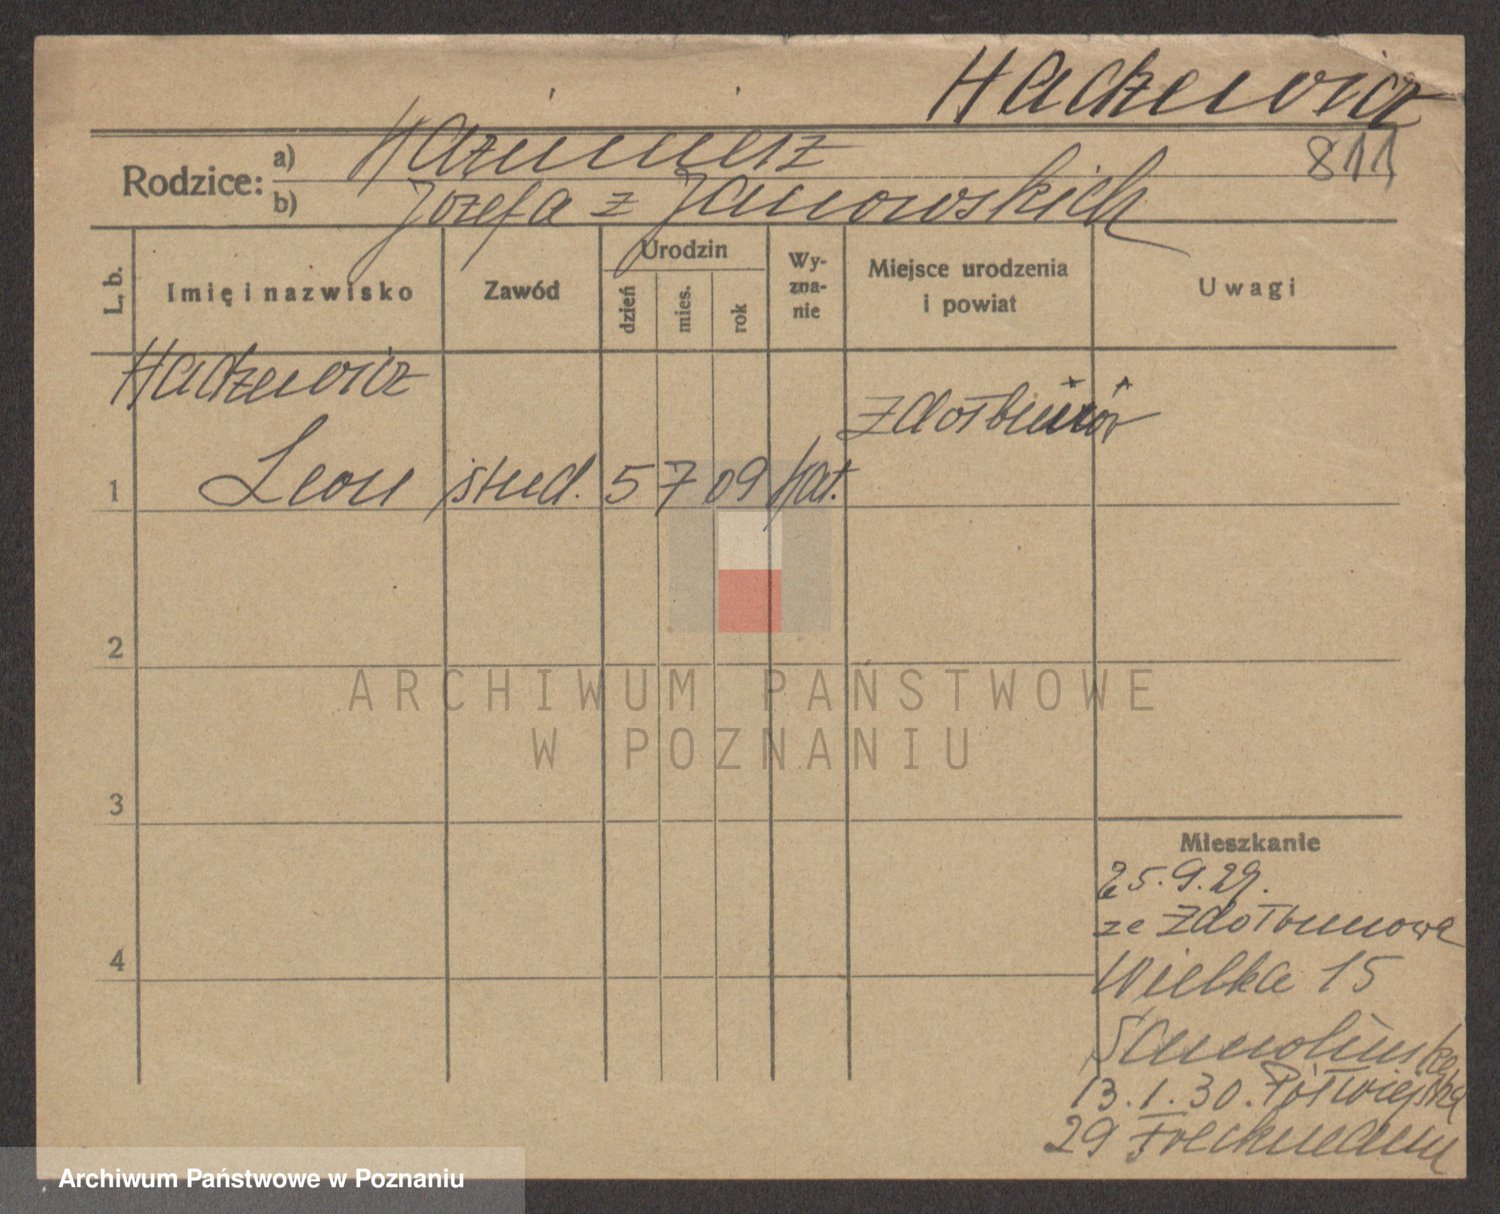 Hackewicz
811
Rodzice: a) Kazimierz
b) Józefa z Janowskich
L. b. Imię i nazwisko Zawód Urodzin dzień mies. rok Wyznanie Miejsce urodzenia i powiat Uwagi
Hackewicz
Zdołbunów
1 Leon stud. 5 7 09 kat.
2
ARCHIWUM PAŃSTWOWE
W POZNANIU
3
Mieszkanie
25.9.29.
ze Zdołbunowa
4
Wielka 15
13.1.30. Półwiejska
29
Archiwum Państwowe w Poznaniu